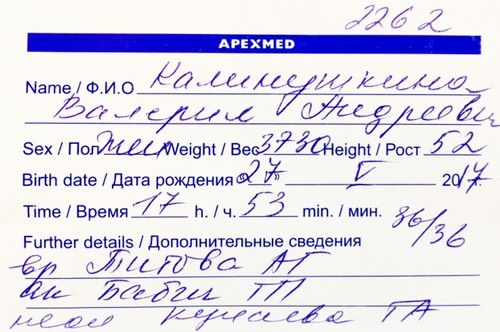 2262
APEXMED
Name / Ф.И.О Калинушкина
Валерия Андреевн
Sex / Пол жен Weight / Вес 3730 Height / Рост 52
Birth date / Дата рождения 27 V 2017
Time / Время 17 h. / ч. 53 min. / мин. 36/36
Further details / Дополнительные сведения
вр Титова АГ
ак Бабич ТП
неон ГА